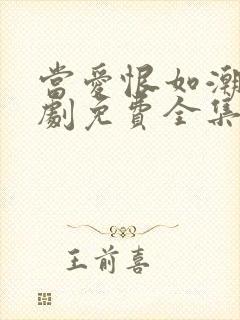 當愛恨如潮
劇免費全集
王前喜